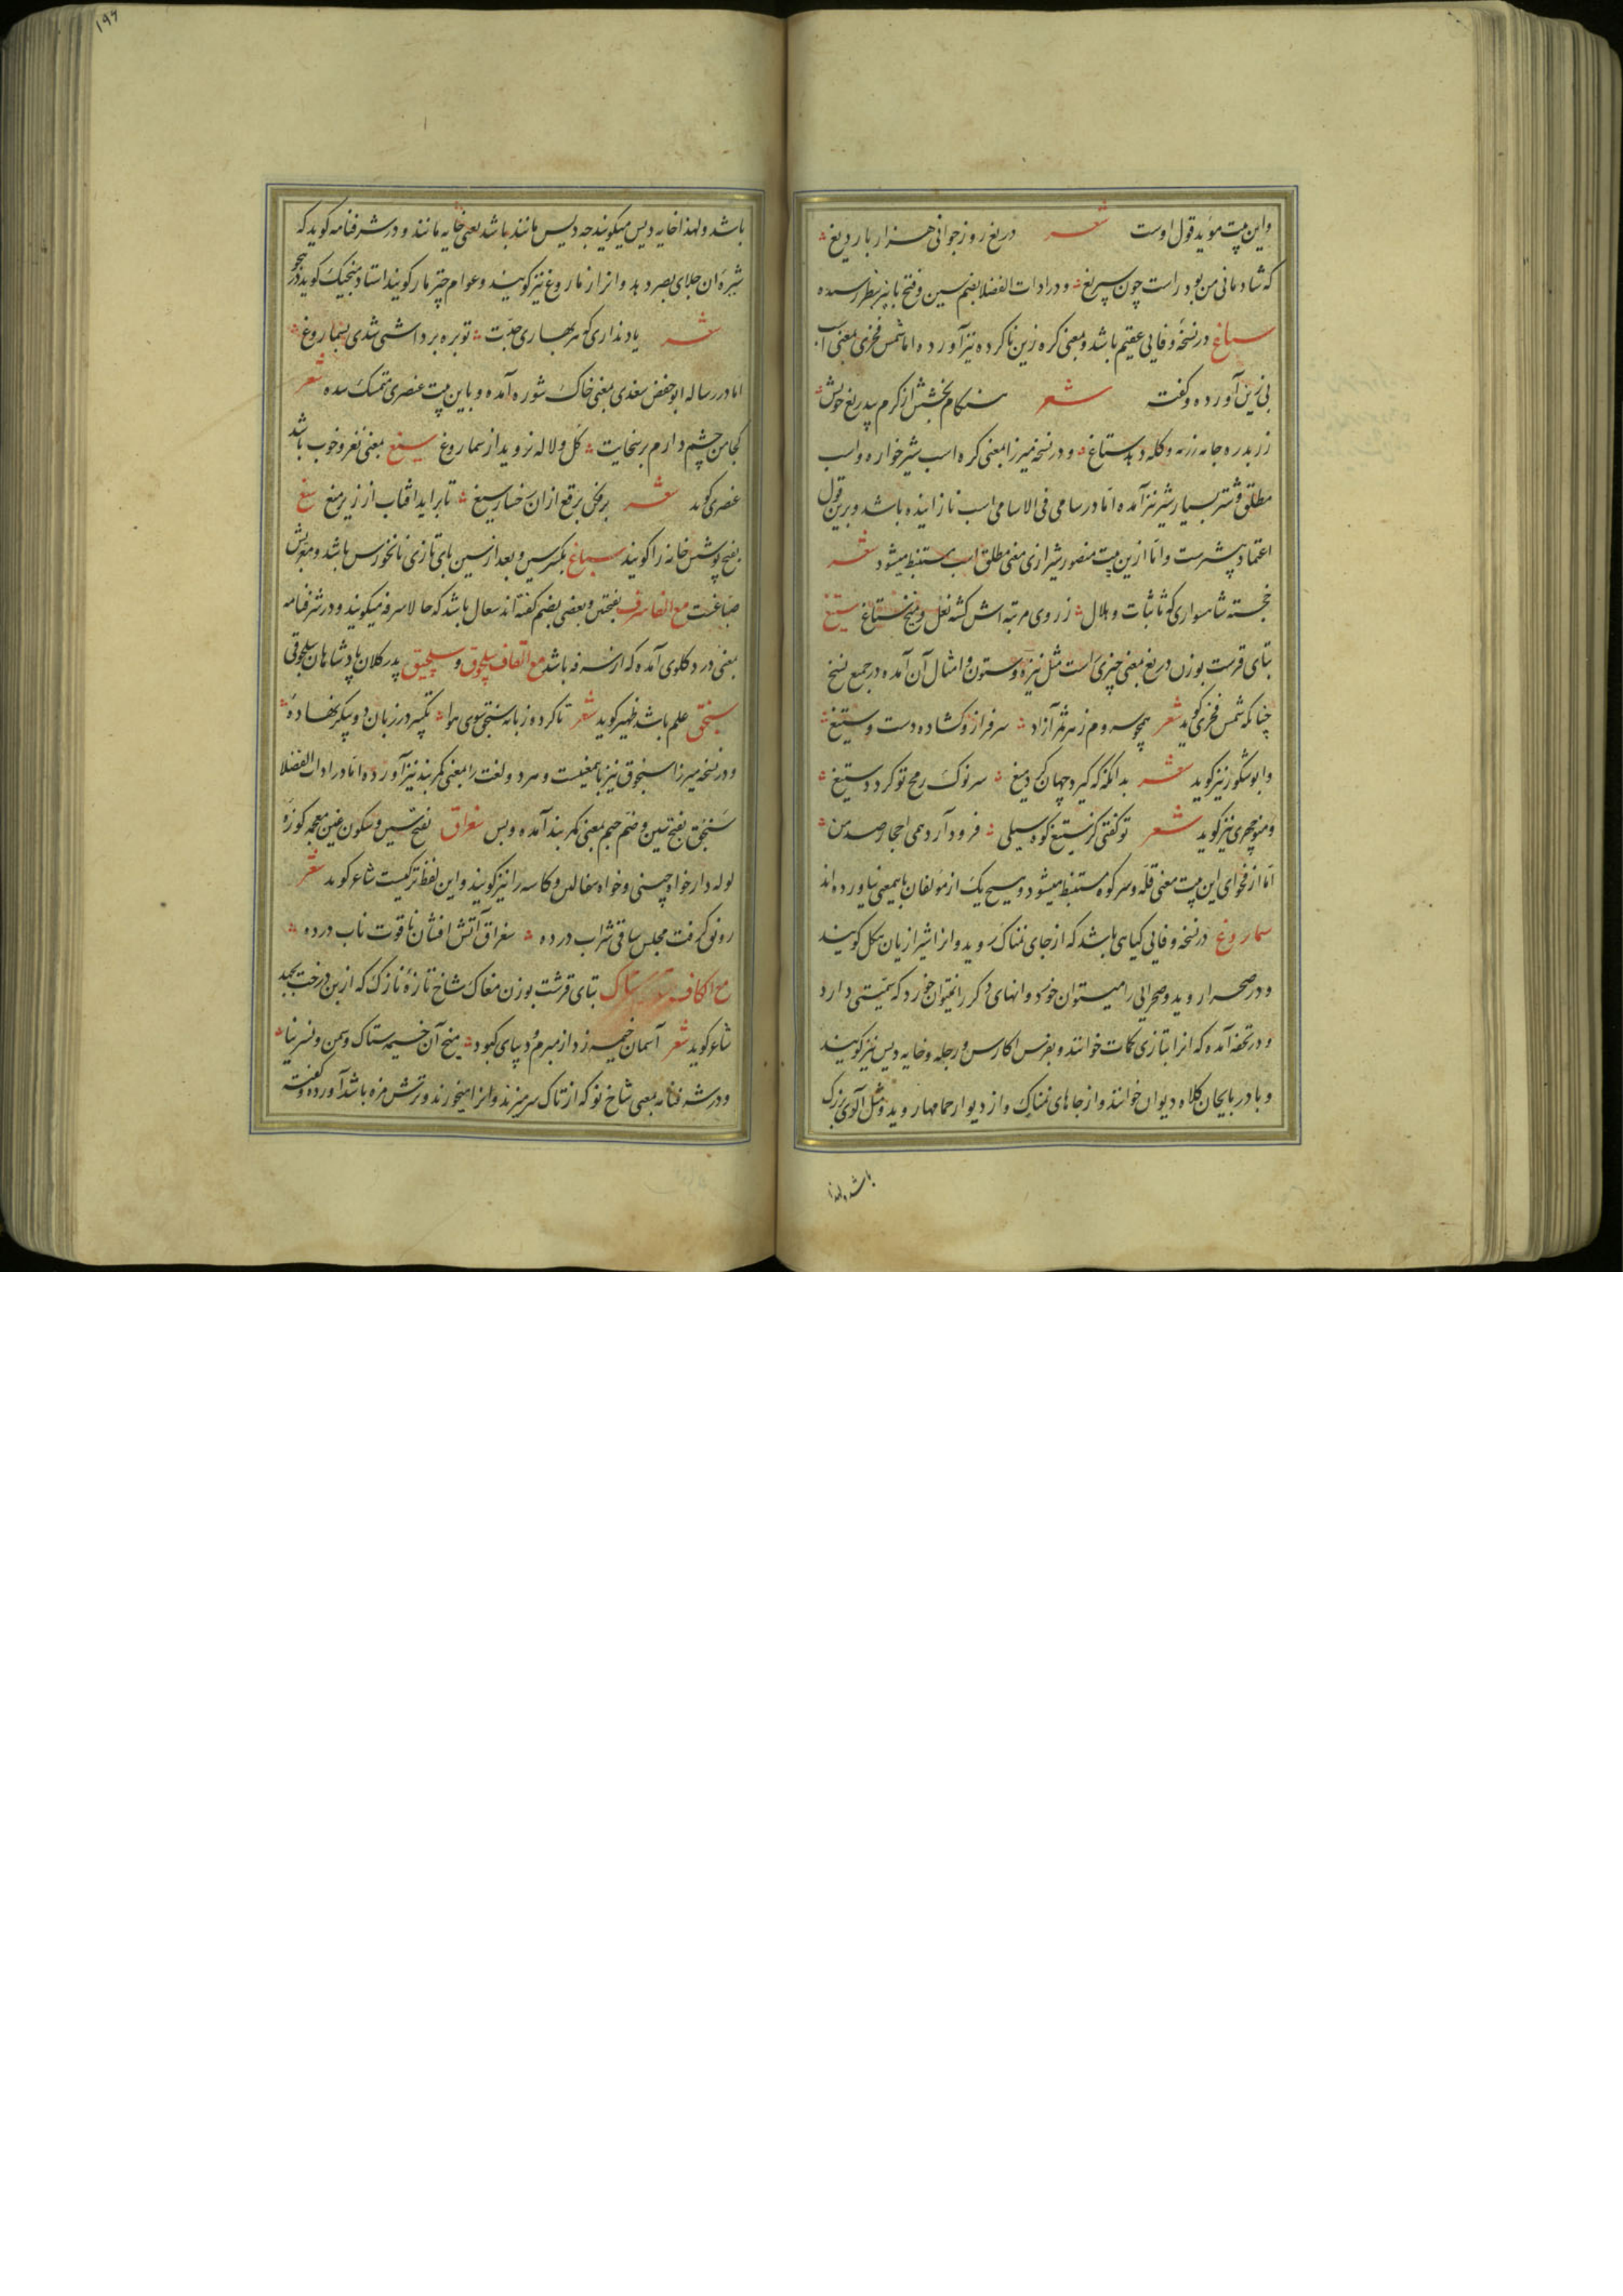 و این بیت مؤید قول اوست شعر دریغ روز جوانی هزار بار دریغ
که شادمانی من بود راست چون سپریغ و در ادات الفضلا بضم سین و فتح با نیز بنظر رسیده
ستاغ در نسخهٔ وفایی عقیم باشد و بمعنی کره زین ناکرده نیز آورده اما شمس فخری بمعنی اسب
بی زین آورده و گفته شعر هنگام بخشش از کرم بیدریغ خویش
زر بدره جامه رزمه و گله دهد ستاغ و در نسخه میرزا بمعنی کره اسب شیرخواره و اسب
مطلق و شتر بسیار شیر نیز آمده اما در سامی فی الاسامی اسب نازاینده باشد و برین قول
اعتماد بیشترست و اما ازین بیت منصور شیرازی معنی مطلق اسب مستنبط میشود شعر
خجسته شاهسواری که ثابتات و هلال ز روی مرتبه اش گشته نعل و میخ ستاغ ستیغ
بتای قرشت بوزن دریغ بمعنی چیزی راست مثل نیزه و ستون و امثال آن آمده در جمیع نسخ
چنانکه شمس فخری گوید شعر همچو سروم ز هر ثمر آزاد سرفراز و گشاده دست و ستیغ
و ابوشکور نیز گوید شعر بدانگه که گیرد جهان گرد میغ سر نوک رمح تو گردد ستیغ
و منوچهری نیز گوید شعر تو گفتی کز ستیغ کوه سیلی فرود آرد همی احجار صد من
اما از فحوای این بیت معنی قله و سر کوه مستنبط میشود و هیچ یک از مؤلفان باینمعنی نیاورده اند
سماروغ در نسخه وفایی گیاهی باشد که از جای نمناک روید و انرا شیرازیان هکل گویند
و در صحرا روید و صحرایی را میتوان خورد و انهای دگر را نمیتوان خورد که سمیتی دارد
و در تحفه آمده که انرا بتازی کمات خوانند و بفرس اکارس و رجله و خایه دیس نیز گویند
و بادربایجان کلاه دیوان خوانند و از جاهای نمناک و از دیوار حمامها روید و مثل آلوی بزرگ
باشد ولهذا
۱۹۶
باشد و لهذا خایه دیس میگویند چه دیس مانند باشد یعنی خایه مانند و در شرفنامه گوید که
شیره ان جلای بصر دهد و انرا زماروغ نیز گویند و عوام چتر مار گویند استاد منجیک گوید در هجو
شعر یاد نداری که هر بهاری جدت توبره برداشتی شدی بسماروغ
اما در رساله ابوحفص سغدی بمعنی خاک شوره آمده و باین بیت عنصری متمسک شده شعر
کجا من چشم دارم بر سخایت گل و لاله نروید از سماروغ سیغ بمعنی نغز و خوب باشد
عنصری گوید شعر برفکن برقع ازان رخسار سیغ تا براید افتاب از زیر میغ سغ
بفتح پوشش خانه را گویند سباغ بکسر سین و بعد از سین بای تازی نانخورش باشد و معربش
صباغست مع الفا سرف بفتحتین و بعضی بضم گفته اند سعال باشد که حالا سرفه میگویند و در شرفنامه
بمعنی درد گلوی آمده که از سرفه باشد مع القاف سلجوق و سلجیق پدر کلان پادشاهان سلجوقی
سنجق علم باشد ظهیر گوید شعر تا کرد روزبانه سنجق سوی هوا تکبیر در زبان دو پیکر نهاده
و در نسخه میرزا سنجوق نیز باینمعنیست و هر دو لغت را بمعنی کمربند نیز آورده اما در ادات الفضلا
سنجق بفتح سین و ضم جیم بمعنی کمربند آمده و بس سغراق بفتح سین و سکون غین معجمه کوزه
لوله دار خواه چینی و خواه سفالین و کاسه را نیز گویند و این لفظ ترکیست شاعر گوید شعر
رونق گرفت مجلس ساقی شراب در ده سغراق آتش افشان یاقوت ناب در ده
مع الکاف ستاک بتای قرشت بوزن مغاک شاخ تازهٔ نازک که از بن درخت بجهد
شاعر گوید شعر آسمان خیمه زد از بیرم و دیبای کبود میخ آن خیمه ستاک و سمن و نسرینا
و در شرفنامه بمعنی شاخ نو که از تاک سر میزند و انرا میخورند و ترش مزه باشد آورده و گفته